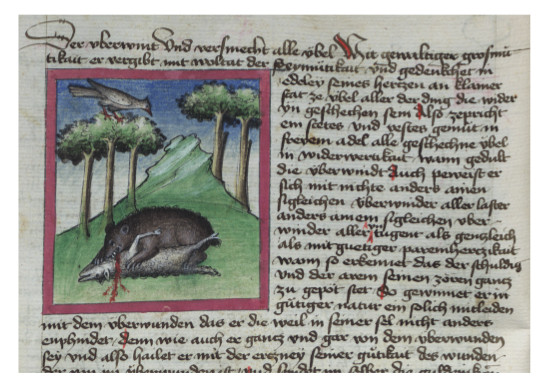 Der vberwint Vnd versmecht alle vbel Mit gewaltiger grosmü
tikait er vergibt mit woltat der hermütikait vnd gedenkhet in
edeler seines hertzen an klainer
stat ze vbel aller der ding die wider
yn geschechen sein Also zepricht
ein stetes vnd vestes gemüt in
freyem adel alle geschechne vbel
in widerwertikait wann gedult
die vberwindt Auch peweist er
sich mit nichte anders ainen
sigleichen vberwinder aller laster
anders ainem sigleichen vber
winder aller tugent als gentzleich
als mit guetiger paremhertzikait
wann so erkennet das der schuldig
vnd der arem seinen zoren gantz
zu gepot stet So gewinnet er in
gütiger natur ein solich mitleiden
mit dem vberwunden das er die weil in seiner sel nicht anders
enphindet Denn wie auch er gantz vnd gar von dem vberwunden
sey vnd also hailet er mit der ertzney seiner gütikait des wunden